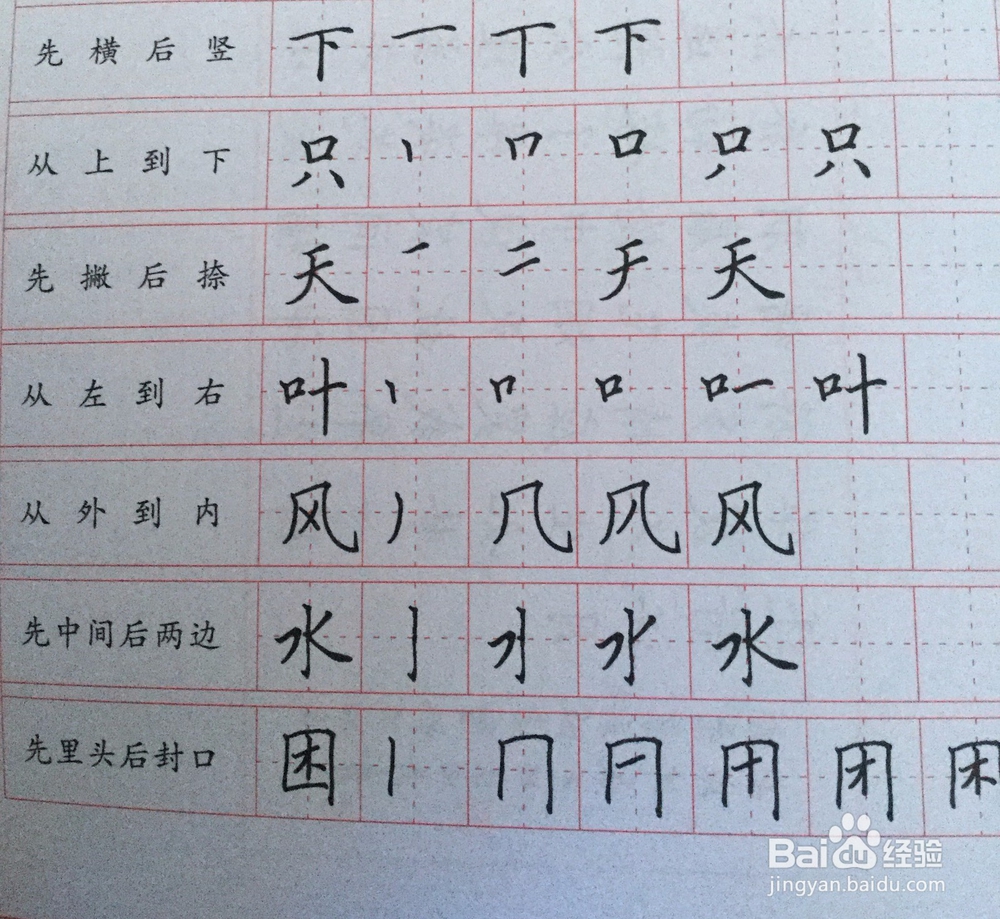 先横后竖 下 一 丅 下
从上到下 只 丨 口 只 只
先撇后捺 天 一 二 天
从左到右 叶 丨 口 叶
从外到内 风 丿 几 风
先中间后两边 水 亅 水
先里头后封口 困 丨 冂 困
Baidu 经验
jingyan.baidu.com